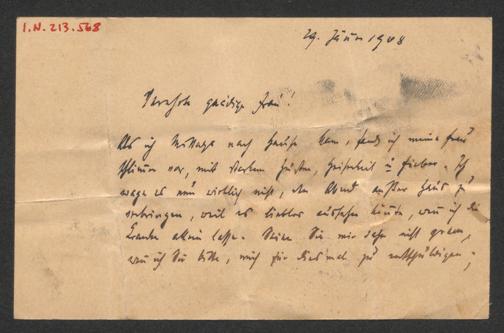 I.N. 213.568
29. Jänner 1908
Verehrte gnädige Frau!
Als ich Mittags nach Hause kam, fand ich meine Frau
schlimmer vor, mit starkem Husten, Heiserkeit u Fieber. Ich
wage es nun wirklich nicht, den Abend außer Haus zu
verbringen, weil es lieblos aussehen könnte, wenn ich die
Kranke allein lasse. Seien Sie mir daher nicht gram,
wenn ich Sie bitte, mich für diesmal zu entschuldigen;